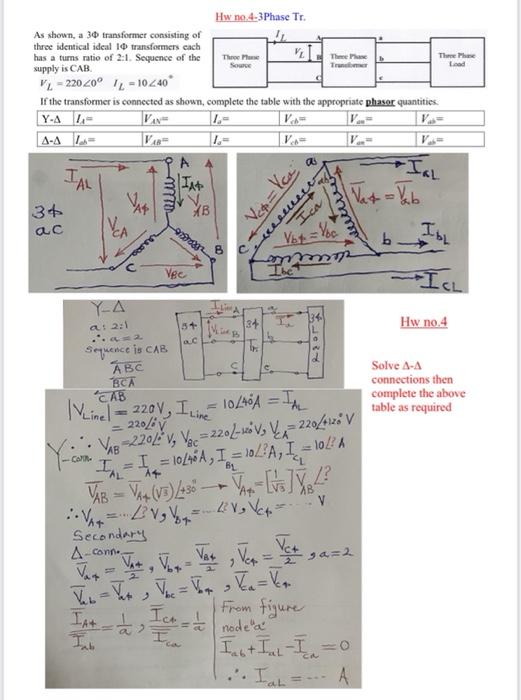 Hw no.4-3Phase Tr.
As shown, a 3Φ transformer consisting of
three identical ideal 1Φ transformers each
has a turns ratio of 2:1. Sequence of the
supply is CAB.
V_L = 220∠0° I_L = 10∠40°
Three Phase
Source
I_L
V_L
A
B
C
Three Phase
Transformer
a
b
c
Three Phase
Load
If the transformer is connected as shown, complete the table with the appropriate phasor quantities.
Y-Δ I_A= V_AN= I_a= V_cb= V_an= V_ab=
Δ-Δ I_ab= V_AB= I_a= V_cb= V_an= V_ab=
3ϕ
ac
I_AL
A
I_Aϕ
V_Aϕ
V_AB
V_CA
B
C
V_BC
a
I_aL
V_cϕ = V_ca
I_ab
V_aϕ = V_ab
I_ca
V_bϕ = V_bc
b
I_bL
c
I_bc
I_cL
Y-Δ
a: 2:1
∴ a = 2
Sequence is CAB
ABC
BCA
CAB
3ϕ
ac
I_Line A
V_Line B
C
3ϕ
Tr.
a
I_a
b
c
3ϕ
Load
Hw no.4
Solve Δ-Δ
connections then
complete the above
table as required
|V_Line| = 220V, I_Line = 10∠40°A = I_AL
= 220∠0°V
Y-conn. ∴ V_AB = 220∠0°V, V_BC = 220∠-120°V, V_CA = 220∠+120°V
I_AL = I_Aϕ = 10∠40°A, I_BL = 10∠?A, I_CL = 10∠?A
V_AB = V_Aϕ(√3)∠+30° → V_Aϕ = [1/√3] V_AB ∠?
∴ V_Aϕ = ...∠?V, V_Bϕ = ...∠?V, V_Cϕ = ...... V
Secondary
Δ-conn.
V_aϕ = V_Aϕ/2, V_bϕ = V_Bϕ/2, V_cϕ = V_Cϕ/2, a=2
V_ab = V_aϕ, V_bc = V_bϕ, V_ca = V_cϕ
I_Aϕ/I_ab = 1/a, I_Cϕ/I_ca = 1/a
From figure
node "a"
I_ab + I_aL - I_ca = 0
∴ I_aL = --- A